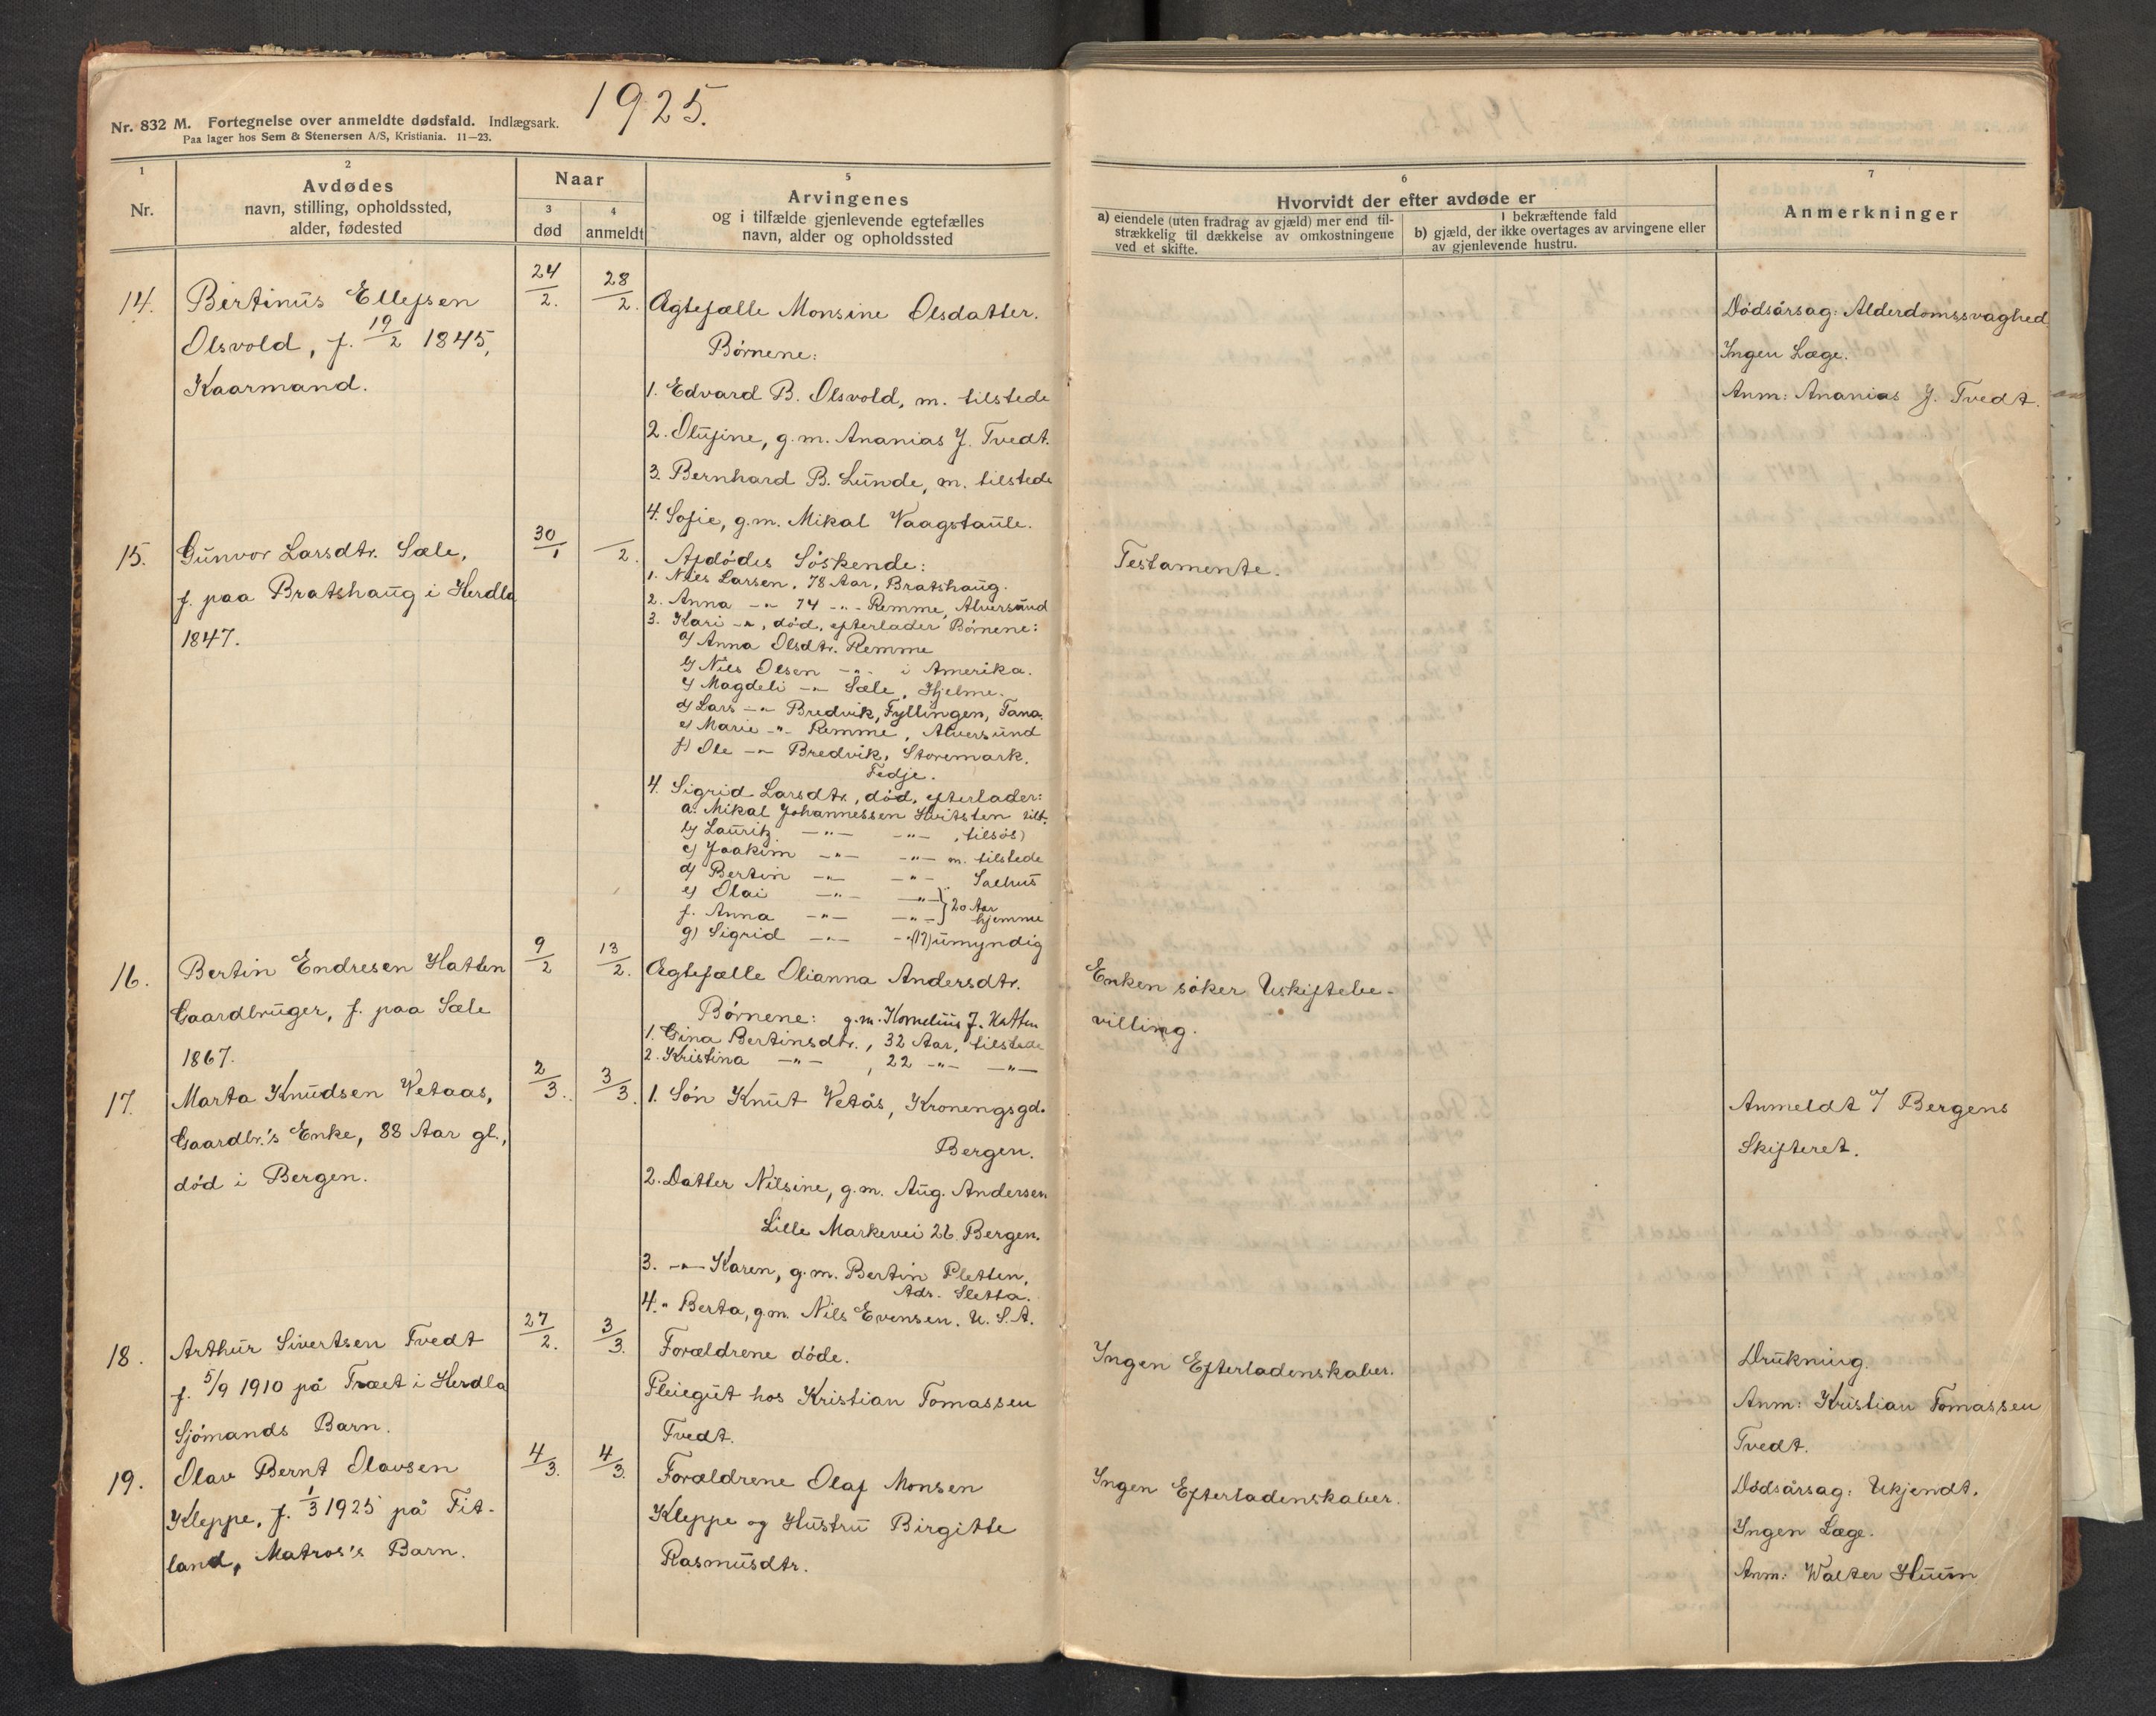 1925.
Nr. 832 M. Fortegnelse over anmeldte dødsfald. Indlægsark.
Paa lager hos Sem & Stenersen A/S, Kristiania. 11—23.
1
Nr.
2
Avdødes
navn, stilling, opholdssted,
alder, fødested
Naar
3
død
4
anmeldt
5
Arvingenes
og i tilfælde gjenlevende egtefælles
navn, alder og opholdssted
6
Hvorvidt der efter avdøde er
a) eiendele (uten fradrag av gjæld) mer end til-
strækkelig til dækkelse av omkostningene
ved et skifte.
I bekræftende fald
b) gjæld, der ikke overtages av arvingene eller
av gjenlevende hustru.
7
Anmerkninger
14. Bertinus Ellefsen
Olsvold, f. 19/2 1845,
Kaarmand.
24/2. 28/2.
Ægtefælle Monsine Olsdatter.
Børnene:
1. Edvard B. Olsvold, m. tilstede
2. Olufine, g.m. Ananias J. Tvedt.
3. Bernhard B. Lunde, m. tilstede
4. Sofie, g.m. Mikal Vaagstaule.
Dødsårsag: Alderdomssvaghed,
Ingen Læge.
Anm: Ananias J. Tvedt.
15. Gunvor Larsdtr. Sæle,
f. paa Bratshaug i Herdla
1847.
30/1 /2.
Afdødes Søskende:
1. Niels Larsen, 78 Aar, Bratshaug.
2. Anna -"- 74 -"- Remme, Alversund
3. Kari -"-, død, efterlader Børnene:
a) Anna Olsdtr. Remme
b) Nils Olsen -"- i Amerika.
c) Magdeli -"- Sæle, Hjelme.
d) Lars -"- Bredvik, Fyllingen, Fana.
e) Marie -"- Remme, Alversund
f) Ole -"- Bredvik, Storemark.
Fedje.
4. Sigrid Larsdtr., død, efterlader:
a. Mikal Johannessen Hvitsten tilst.
b) Lauritz -"- -"-, tilsøs)
c) Joakim -"- -"- m. tilstede
d) Bertin -"- -"- Salhus
e) Olai -"- -"- } 20 Aar
f. Anna -"- -"- } hjemme
g) Sigrid -"- -"- (17) umyndig
Testamente.
16. Bertin Endresen Hatten
Gaardbruger, f. paa Sæle
1867.
9/2 13/2.
Ægtefælle Olianna Andersdtr.
Børnene: g.m. Kornelius J. Hatten
1. Gina Bertinsdtr., 32 Aar, tilstede
2. Kristina -"-, 22 -"- -"-
Enken søker Uskiftebe-
villing.
17. Marta Knudsen Vetaas,
Gaardbr.'s Enke, 88 Aar gl.,
død i Bergen.
2/3. 3/3.
1. Søn Knut Vetås, Kronengsgd.
Bergen.
2. Datter Nilsine, g.m. Aug. Andersen
Lille Markevei 26. Bergen.
3. -"- Karen, g.m. Bertin Pletten,
Adr. Sletta.
4. " Berta, g.m. Nils Evensen. U.S.A.
Anmeldt af Bergens
Skifteret.
18. Arthur Sivertsen Tvedt
f. 5/9 1910 på Træet i Herdla
Sjømands Barn.
27/2. 3/3.
Forældrene døde.
Pleiegut hos Kristian Tomassen
Tvedt.
Ingen Efterladenskaber.
Drukning.
Anm: Kristian Tomassen
Tvedt.
19. Olav Bernt Olavsen
Kleppe, f. 1/3 1925 på Fit-
land, Matros's Barn.
4/3. 4/3.
Forældrene Olaf Monsen
Kleppe og Hustru Birgitte
Rasmusdtr.
Ingen Efterladenskaber.
Dødsårsag: Ukjendt.
Ingen Læge.
Anm: Walter Huun